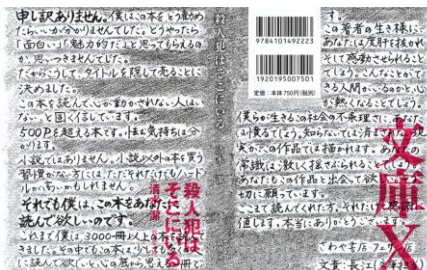 申し訳ありません。僕はこの本をどう勧め
たらいいか分かりませんでした。どうやったら
「面白い」「魅力的だ」と思ってもらえるの
か、思いつきませんでした。
だからこうして、タイトルを隠して売ることに
決めました。
この本を読んで心が動かされない人はい
ない、と固く信じています。
500Pを超える本です。怯む気持ちは分
かります。
小説ではありません。小説以外の本を買う
習慣がない方には、ただそれだけでもハード
ルが高いかもしれません。
それでも僕は、この本をあなたに
読んで欲しいのです。
これまで僕は3000冊以上の本を読んで
きました。その中でもこの本は
に読んで欲しいと心の底から思える一冊で
殺人犯は
そこにいる
清水潔
殺人犯はそこにいる
9784101492223
1920195007501
定価:本体750円(税別)
す。
この著者の生き様に
あなたは度肝を抜かれ
そして感動させられること
でしょう。こんなことがで
きる人間がいるのかと、心
が熱くなることでしょう。
僕らが生きるこの社会の不条理さに、あなた
は憤るでしょう。知らないでは済まされない現
実が、この作品では描かれます。あなたの
常識は激しく揺さぶられることでしょう。
あなたもこの作品と出会って欲しいと、
切に願っています。
ここまで読んでくれた方、それだけで
値します。本当にありがとうございます。
さわや書店 フェザン店
文責:長江(文庫担当)
文庫X